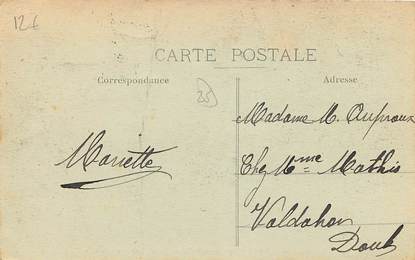 126
CARTE POSTALE
Correspondance
Adresse
25
Mariette
Madame M. Aufroux
Chez Mme Mathis
Valdahon
Doubs